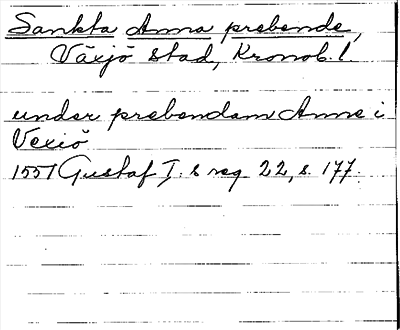 Sankta Anna prebende,
Växjö stad, Kronob. l.
under prebendam Anne i
Vexiö
1557 Gustaf I. s reg 22, s. 177.